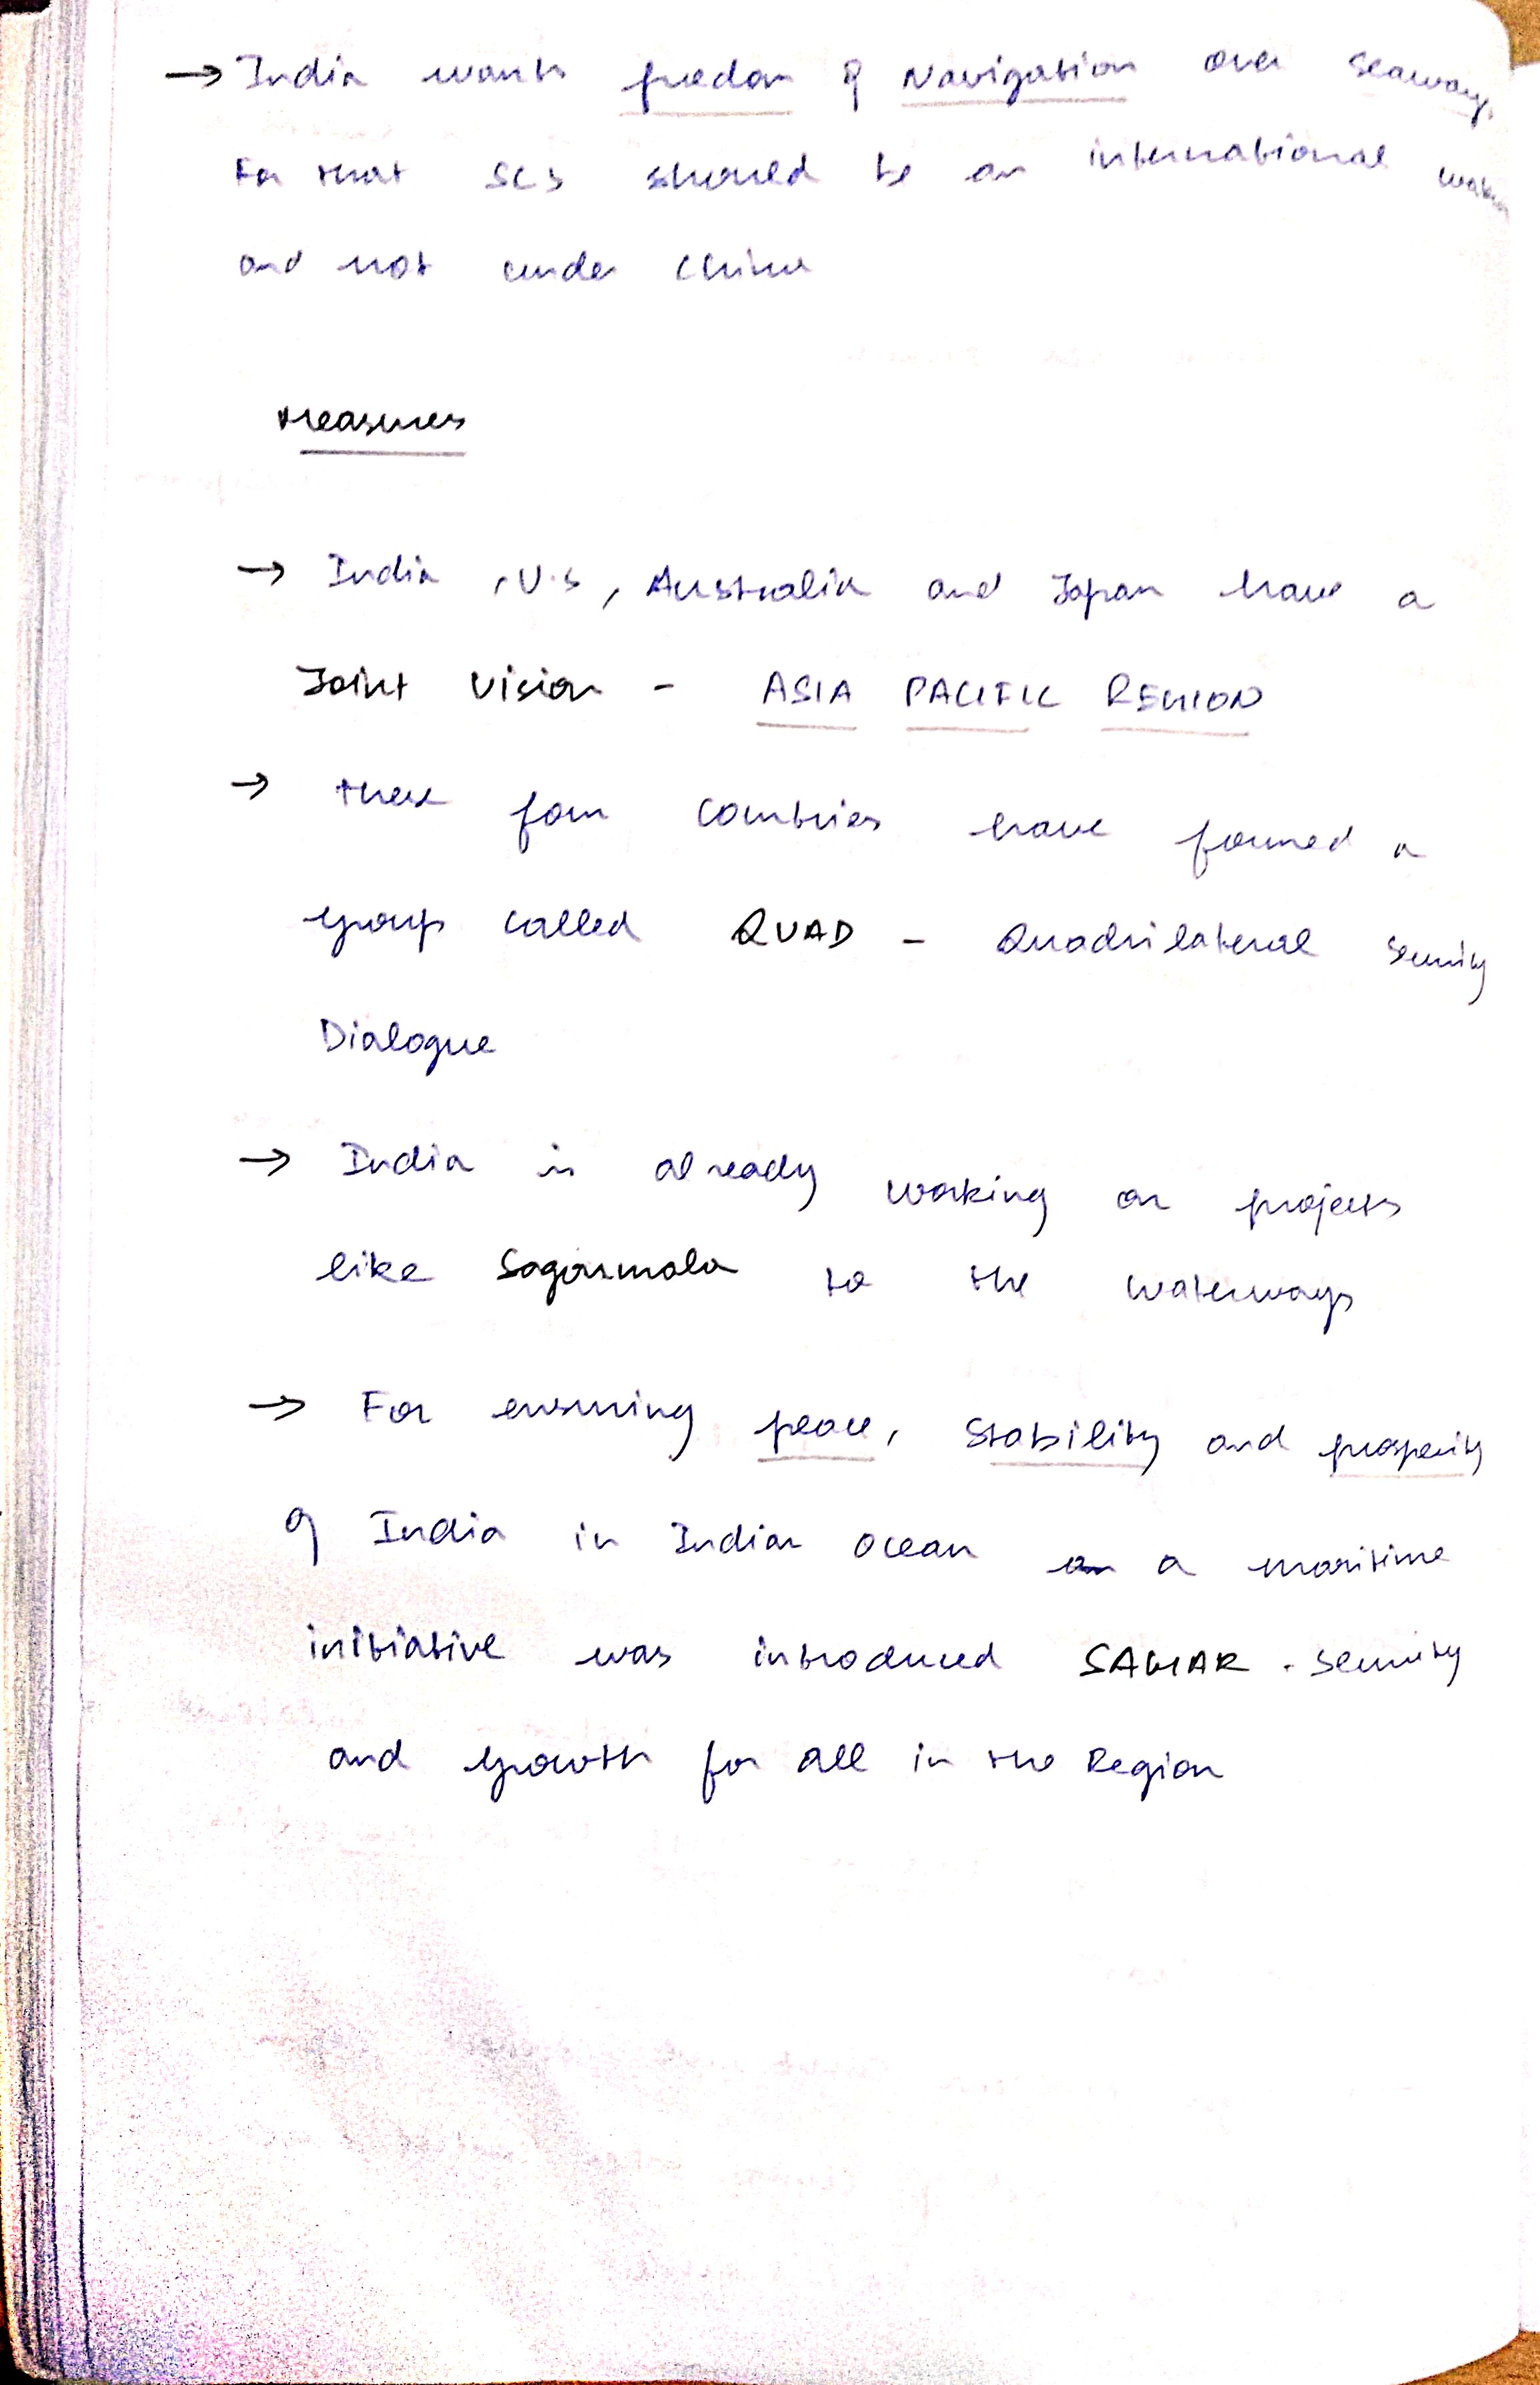 → India wants freedom of Navigation over seaways.
For that SCS should be an international water
and not under China
Measures
→ India , U.S , Australia and Japan have a
Joint Vision - ASIA PACIFIC REGION
→ these four countries have formed a
group called QUAD - Quadrilateral Security
Dialogue
→ India is already working on projects
like Sagarmala to the waterways
→ For ensuring peace, stability and prosperity
of India in Indian Ocean a maritime
initiative was introduced SAGAR - Security
and growth for all in the Region